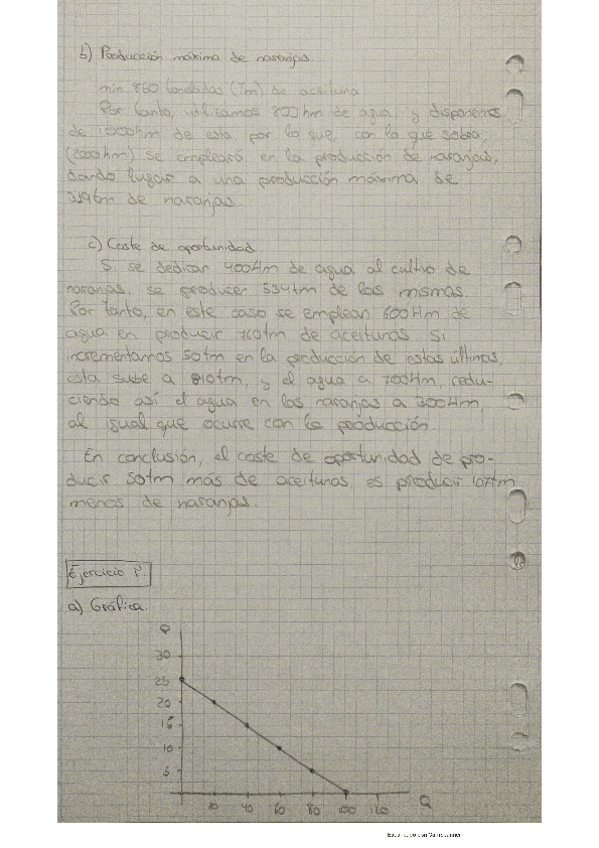 b) Producción máxima de naranjas.
min 860 toneladas (Tm) de aceituna.
Por tanto, utilizamos 800hm de agua, y disponemos
de 1000hm de esta por lo que, con lo que sobra,
(200hm) se empleará en la producción de naranjas,
dando lugar a una producción máxima de
de naranjas.
c) Coste de oportunidad
Si se dedican 400Hm de agua al cultivo de
naranjas, se producen 534tm de las mismas.
Por tanto, en este caso se emplean 600Hm de
agua en producir 760tm de aceitunas. Si
incrementamos 50tm en la producción de estas últimas,
esta sube a 810tm, y el agua a 700Hm, redu-
ciendo así el agua en las naranjas a 300Hm,
al igual que ocurre con la producción.
En conclusión, el coste de oportunidad de pro-
ducir 50tm más de aceitunas, es producir 107tm
menos de naranjas.
Ejercicio
a) Gráfica.
P
30
25
20
15
10
5
20 40 60 80 100 120 Q